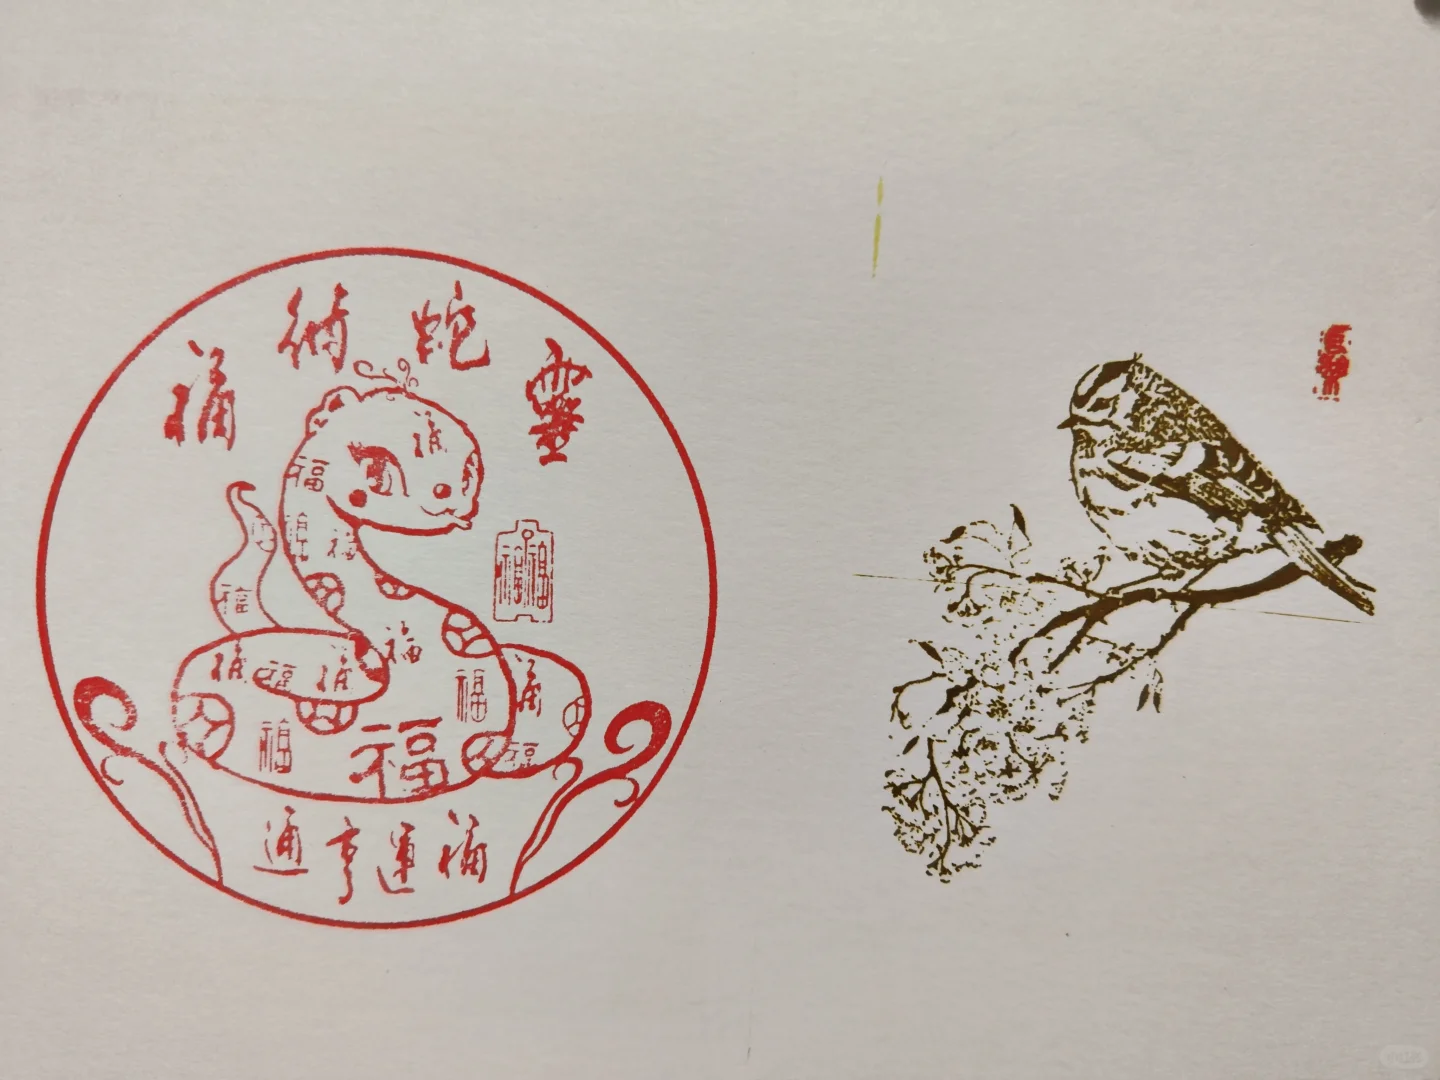 靈蛇衔福
福
福
福
福
福
福福
福
福
福
福
福
福
福
福
福
福
福運亨通